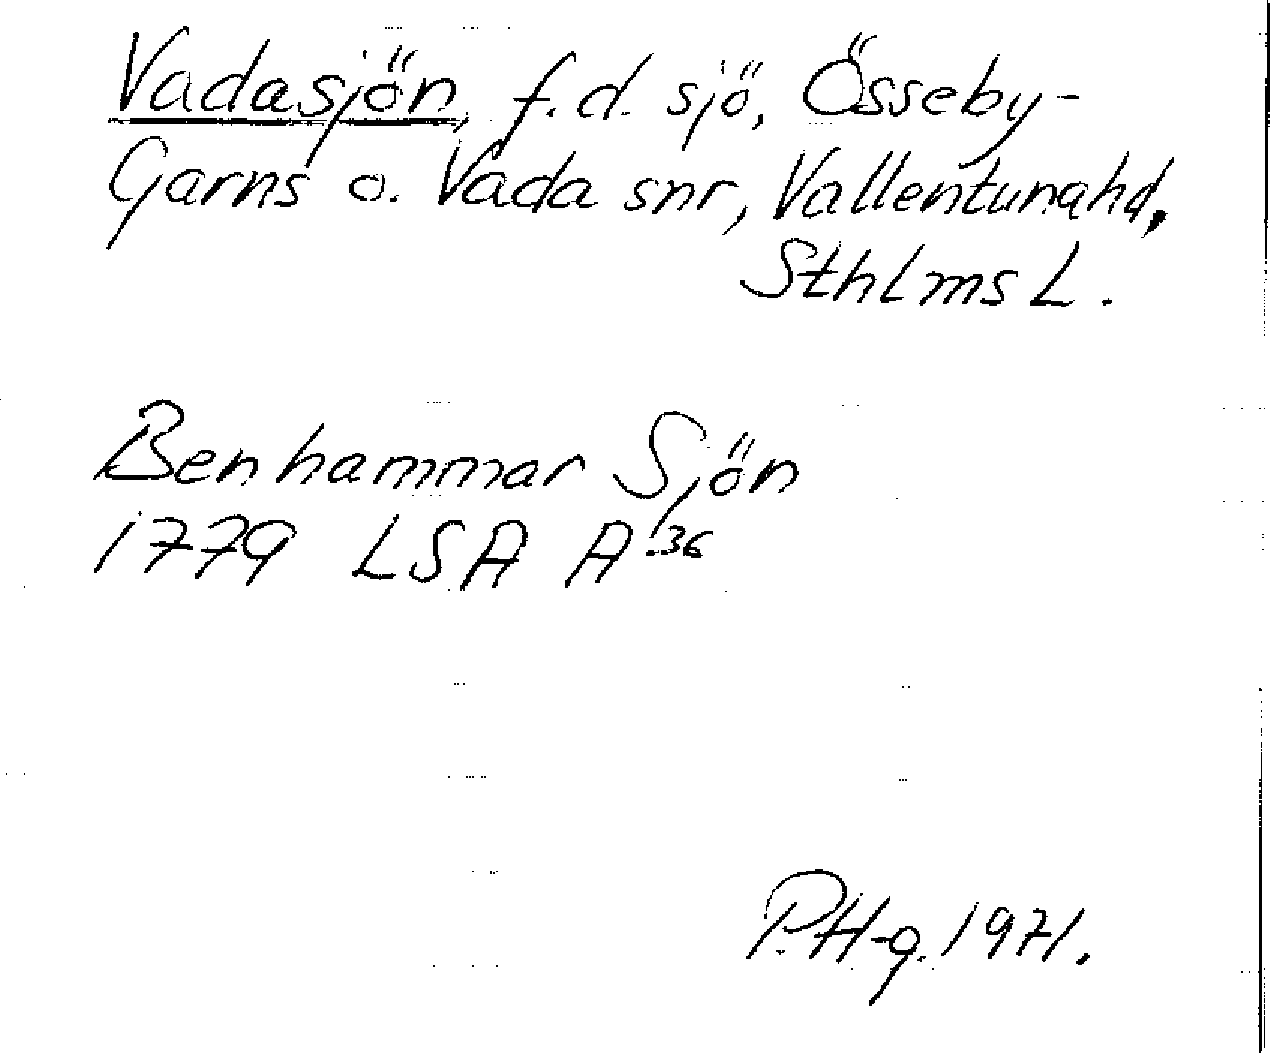 Vadasjön, f.d. sjö, Össeby-
Garns o. Vada snr, Vallentunahd,
Sthlms L.
Benhammar Sjön
1779 LSA A 36
P.H-g. 1971.